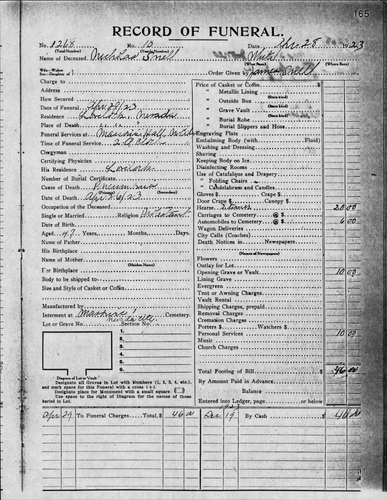 165
RECORD OF FUNERAL.
No. 1264 No. 10 Date, Apr 28 1923
(Total Number) (Yearly Number)
Name of Deceased White
Order Given by James Snell
Charge to
Address
How Secured
Date of Funeral Apr 29/23
Residence Lovelock, Nevada
Place of Death
Funeral Services at Masonic Hall
Time of Funeral Service 2 O'Clock
Clergyman
Certifying Physician
His Residence Lovelock
Number of Burial Certificate
Cause of Death Pneumonia
Date of Death Apr 26/23
Occupation of the Deceased
Single or Married Religion Protestant
Date of Birth
Aged 47 Years, Months, Days.
Name of Father
His Birthplace
Name of Mother
(Maiden Name)
Her Birthplace
Body to be shipped to
Size of Casket
Manufactured by
Interment at Cemetery.
Lot or Grave No. Section No.
1
2
3
4
5
6
Diagram of Lot or Vault
Designate all Graves in Lot with Numbers (1, 2, 3, 4, etc.), and mark space for this Funeral with a cross (+). Designate place for Monument with a small square (□) Use space to the right of Diagram for the names of those buried in Lot.
Price of Casket or Coffin
" Metallic Lining
(State kind)
" Outside Box
(State kind)
" Grave Vault
(State kind)
" Burial Robe
(State kind)
" Burial Slippers and Hose
Engraving Plate
Embalming Body (with Fluid)
Washing and Dressing
Shaving
Keeping Body on Ice
Disinfecting Rooms
Use of Catafalque and Drapery
" Folding Chairs
" Candelabrum and Candles
Gloves $ Crape $
Door Crape $ Canopy $
Hearse 2 Times 20 00
Carriages to Cemetery @ $
Automobiles to Cemetery @ $ 6 00
Wagon Deliveries
City Calls (Coaches)
Death Notices in Newspapers.
(Names of Newspapers)
Flowers
Outlay for Lot
Opening Grave or Vault 10 00
Lining Grave
Evergreen
Tent or Awning Charges
Vault Rental
Shipping Charges, prepaid
Removal Charges
Cremation Charges
Porters $ Watchers $
Personal Services 10 00
Music
Church Charges
Total Footing of Bill $ 46 00
By Amount Paid in Advance
Balance
Entered into Ledger, page or below.
Apr 29 To Funeral Charges Total, $ 46 00 Dec 19 1923 By Cash $ 46 00